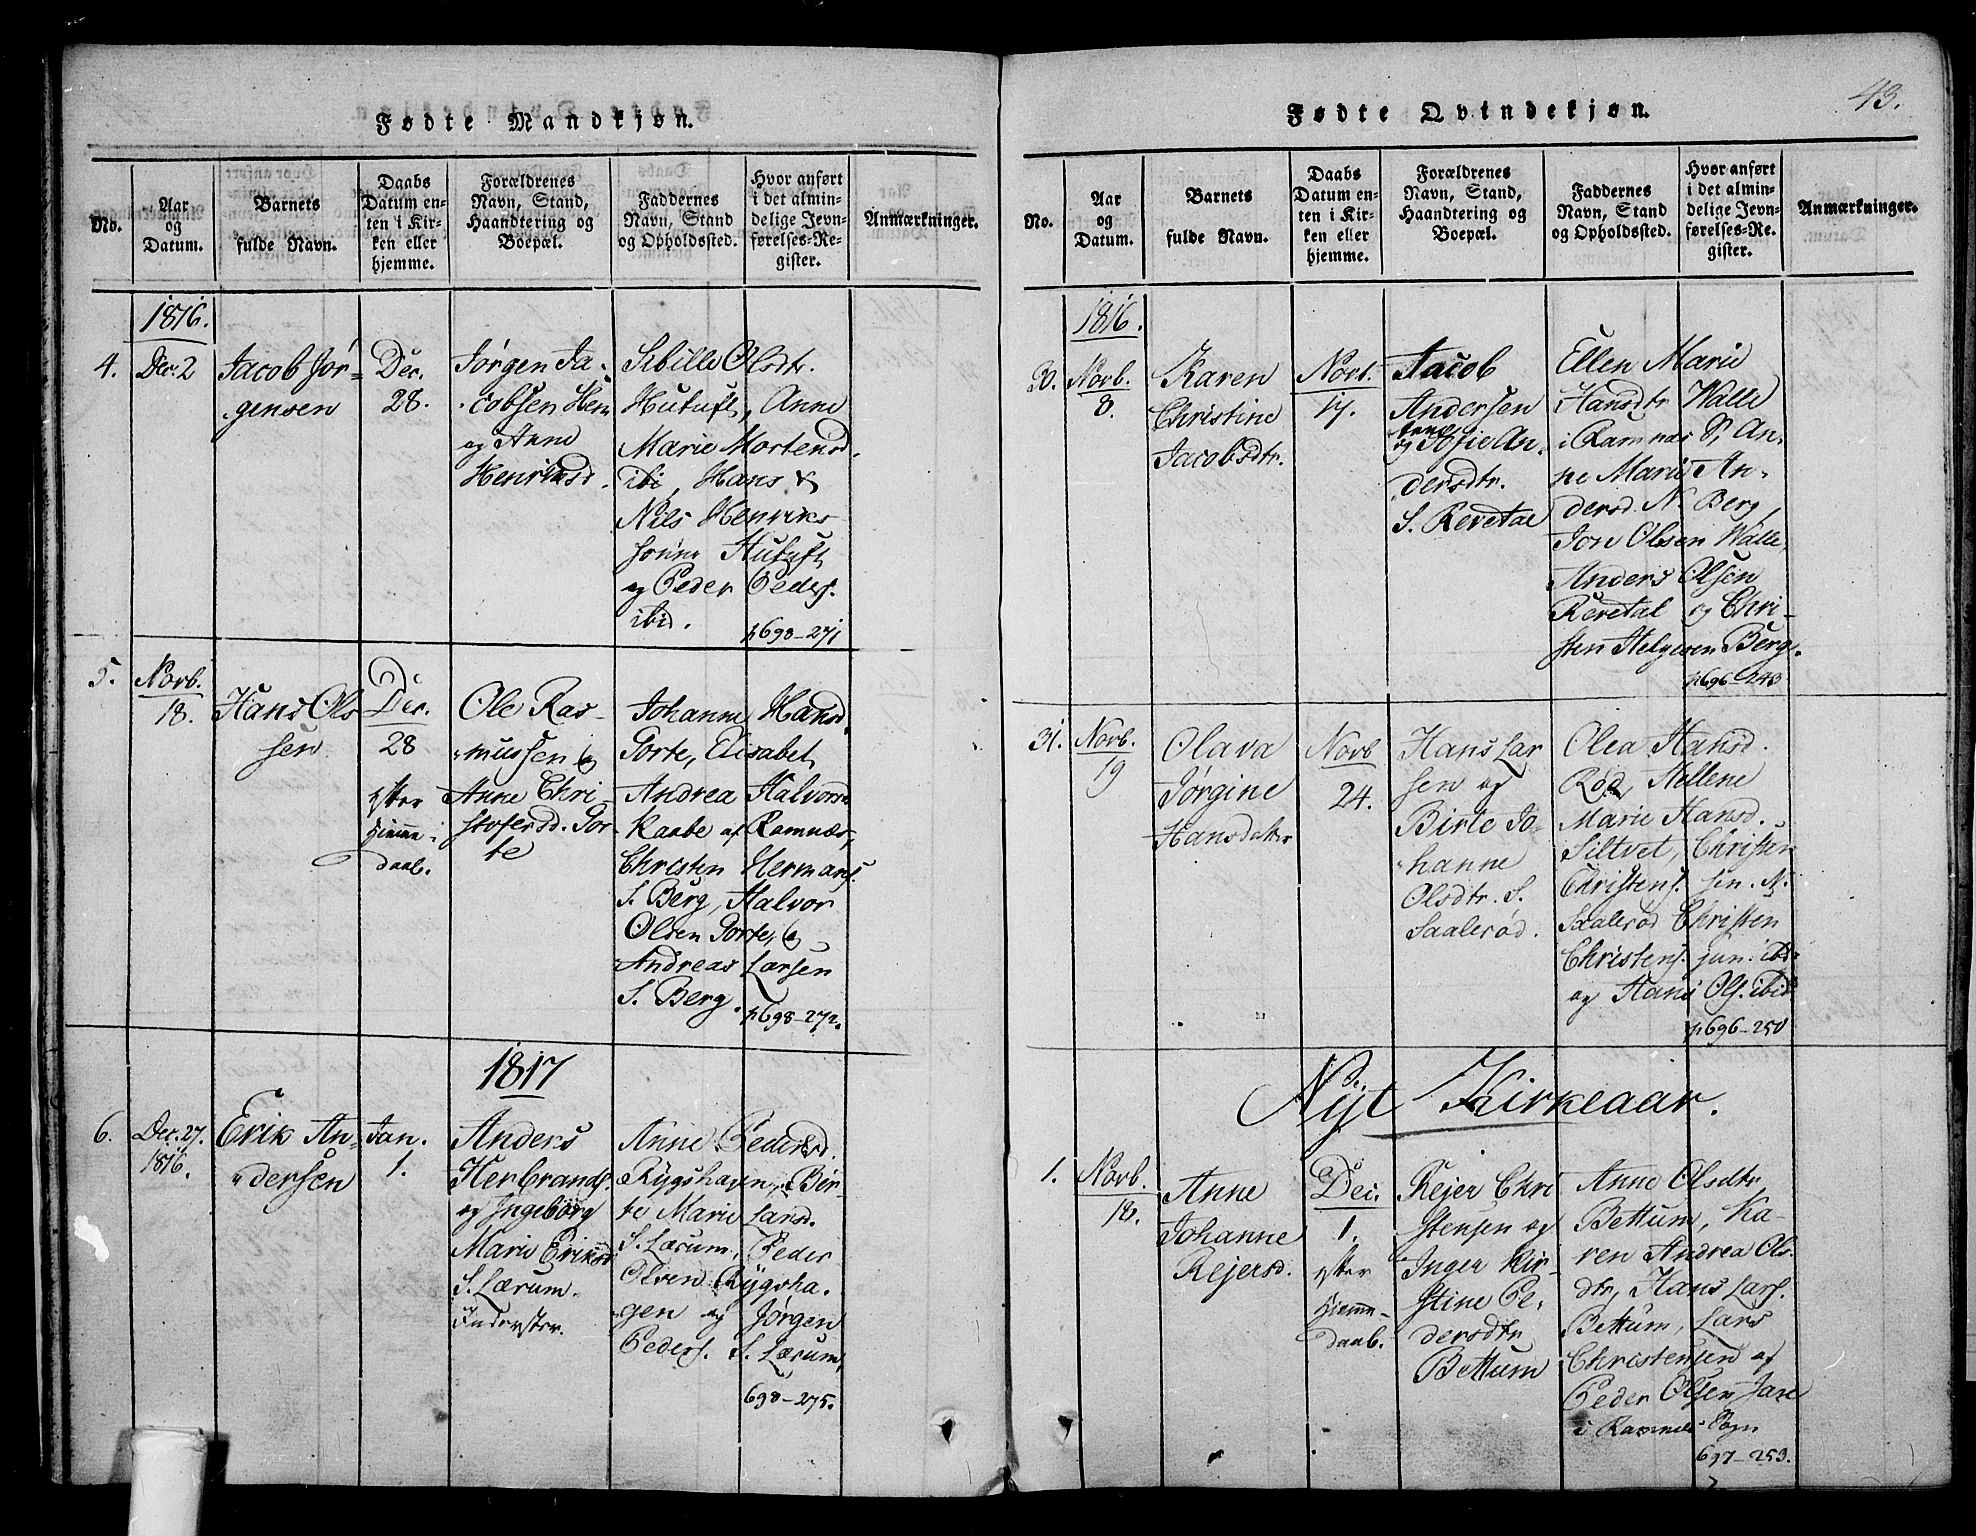 43.
Fødte Mandkjøn.
No.
Aar
og
Datum.
Barnets
fulde Navn.
Daabs
Datum en-
ten i Kir-
ken eller
hjemme.
Forældrenes
Navn, Stand,
Haandtering og
Boepæl.
Faddernes
Navn, Stand
og Opholdssted.
Hvor anført
i det almin-
delige Jevn-
førelses-Re-
gister.
Anmærkninger.
1816.
4.
Dec. 2
Jacob Jør-
gensen
Dec.
28.
Jørgen Ja-
cobsen Hem
og Anne
Henriksd.
Sibille Olsdtr.
Hutuft, Anne
Marie Mortensd.
ibi, Hans &
Nils Henriks
sønner Hutuft
og Peder Peders.
ibid.
p698-271
5.
Novb.
18.
Hans Ols
sen
Dec.
28
efter
Hiemme-
daab.
Ole Ras-
mussen &
Anne Chri-
stofersd. Por-
te
Johanne Hansd.
Porte, Elisabet
Andrea Halvorsd.
Kaabe af Ramnæs,
Christen Hermans.
S. Berg, Halvor
Olsen Porte, &
Andreas Larsen
S. Berg.
p698-272.
1817
6.
Dec. 27.
1816.
Erik An-
dersen
Jan.
1.
Anders
Herbrands.
og Ingeborg
Marie Eriksd
S. Lærum.
Inderster.
Anne Pedersd.
Rygshavn, Bir-
te Marie Larsd.
S. Lærum, Peder
Olsen Rygsha-
gen og Jørgen
Peders. S. Lærum,
698-275.
Fødte Qvindekjøn.
No.
Aar
og
Datum.
Barnets
fulde Navn.
Daabs
Datum en-
ten i Kir-
ken eller
hjemme.
Forældrenes
Navn, Stand,
Haandtering og
Boepæl.
Faddernes
Navn, Stand
og Opholdssted.
Hvor anført
i det almin-
delige Jevn-
førelses-Re-
gister.
Anmærkninger.
1816.
30.
Novb.
8.
Karen
Christine
Jacobsdtr.
Novb.
17.
Jacob
Andersen
Anne
og Sofie An-
dersdtr.
S. Revetal
Ellen Marie
Hansdtr Walle
i Ramnæs S, An-
ne Marie An-
dersd. N. Berg,
Jon Olsen Walle,
Anders Olsen
Revetal og Chri-
sten Helgesen Berg.
p696-248
31.
Novb.
19
Olava
Jørgine
Hansdatter
Novb
24.
Hans Lar
sen og
Birte Jo-
hanne
Olsdtr. S.
Saalerød.
Olea Hansd.
Rød, Hellene
Marie Hansd.
Siltvet, Christen
Christens. sen. N.
Saalerød Christen
Christens. jun. ibd.
og Hans Ols. ibid
p696-250
Nyt Kirkeaar.
1.
Novb.
18.
Anne
Johanne
Rejersd.
Dec.
1.
efter
Hiemme-
daab.
Rejer Chri
stensen og
Inger Kir-
stine Pe-
dersdtr
Bettum
Anne Olsdtr
Bettum, Ka-
ren Andrea Ols-
dtr, Hans Lars.
Bettum, Lars
Christensen og
Peder Olsen Jare
i Ramnæs Sogn
697-253.